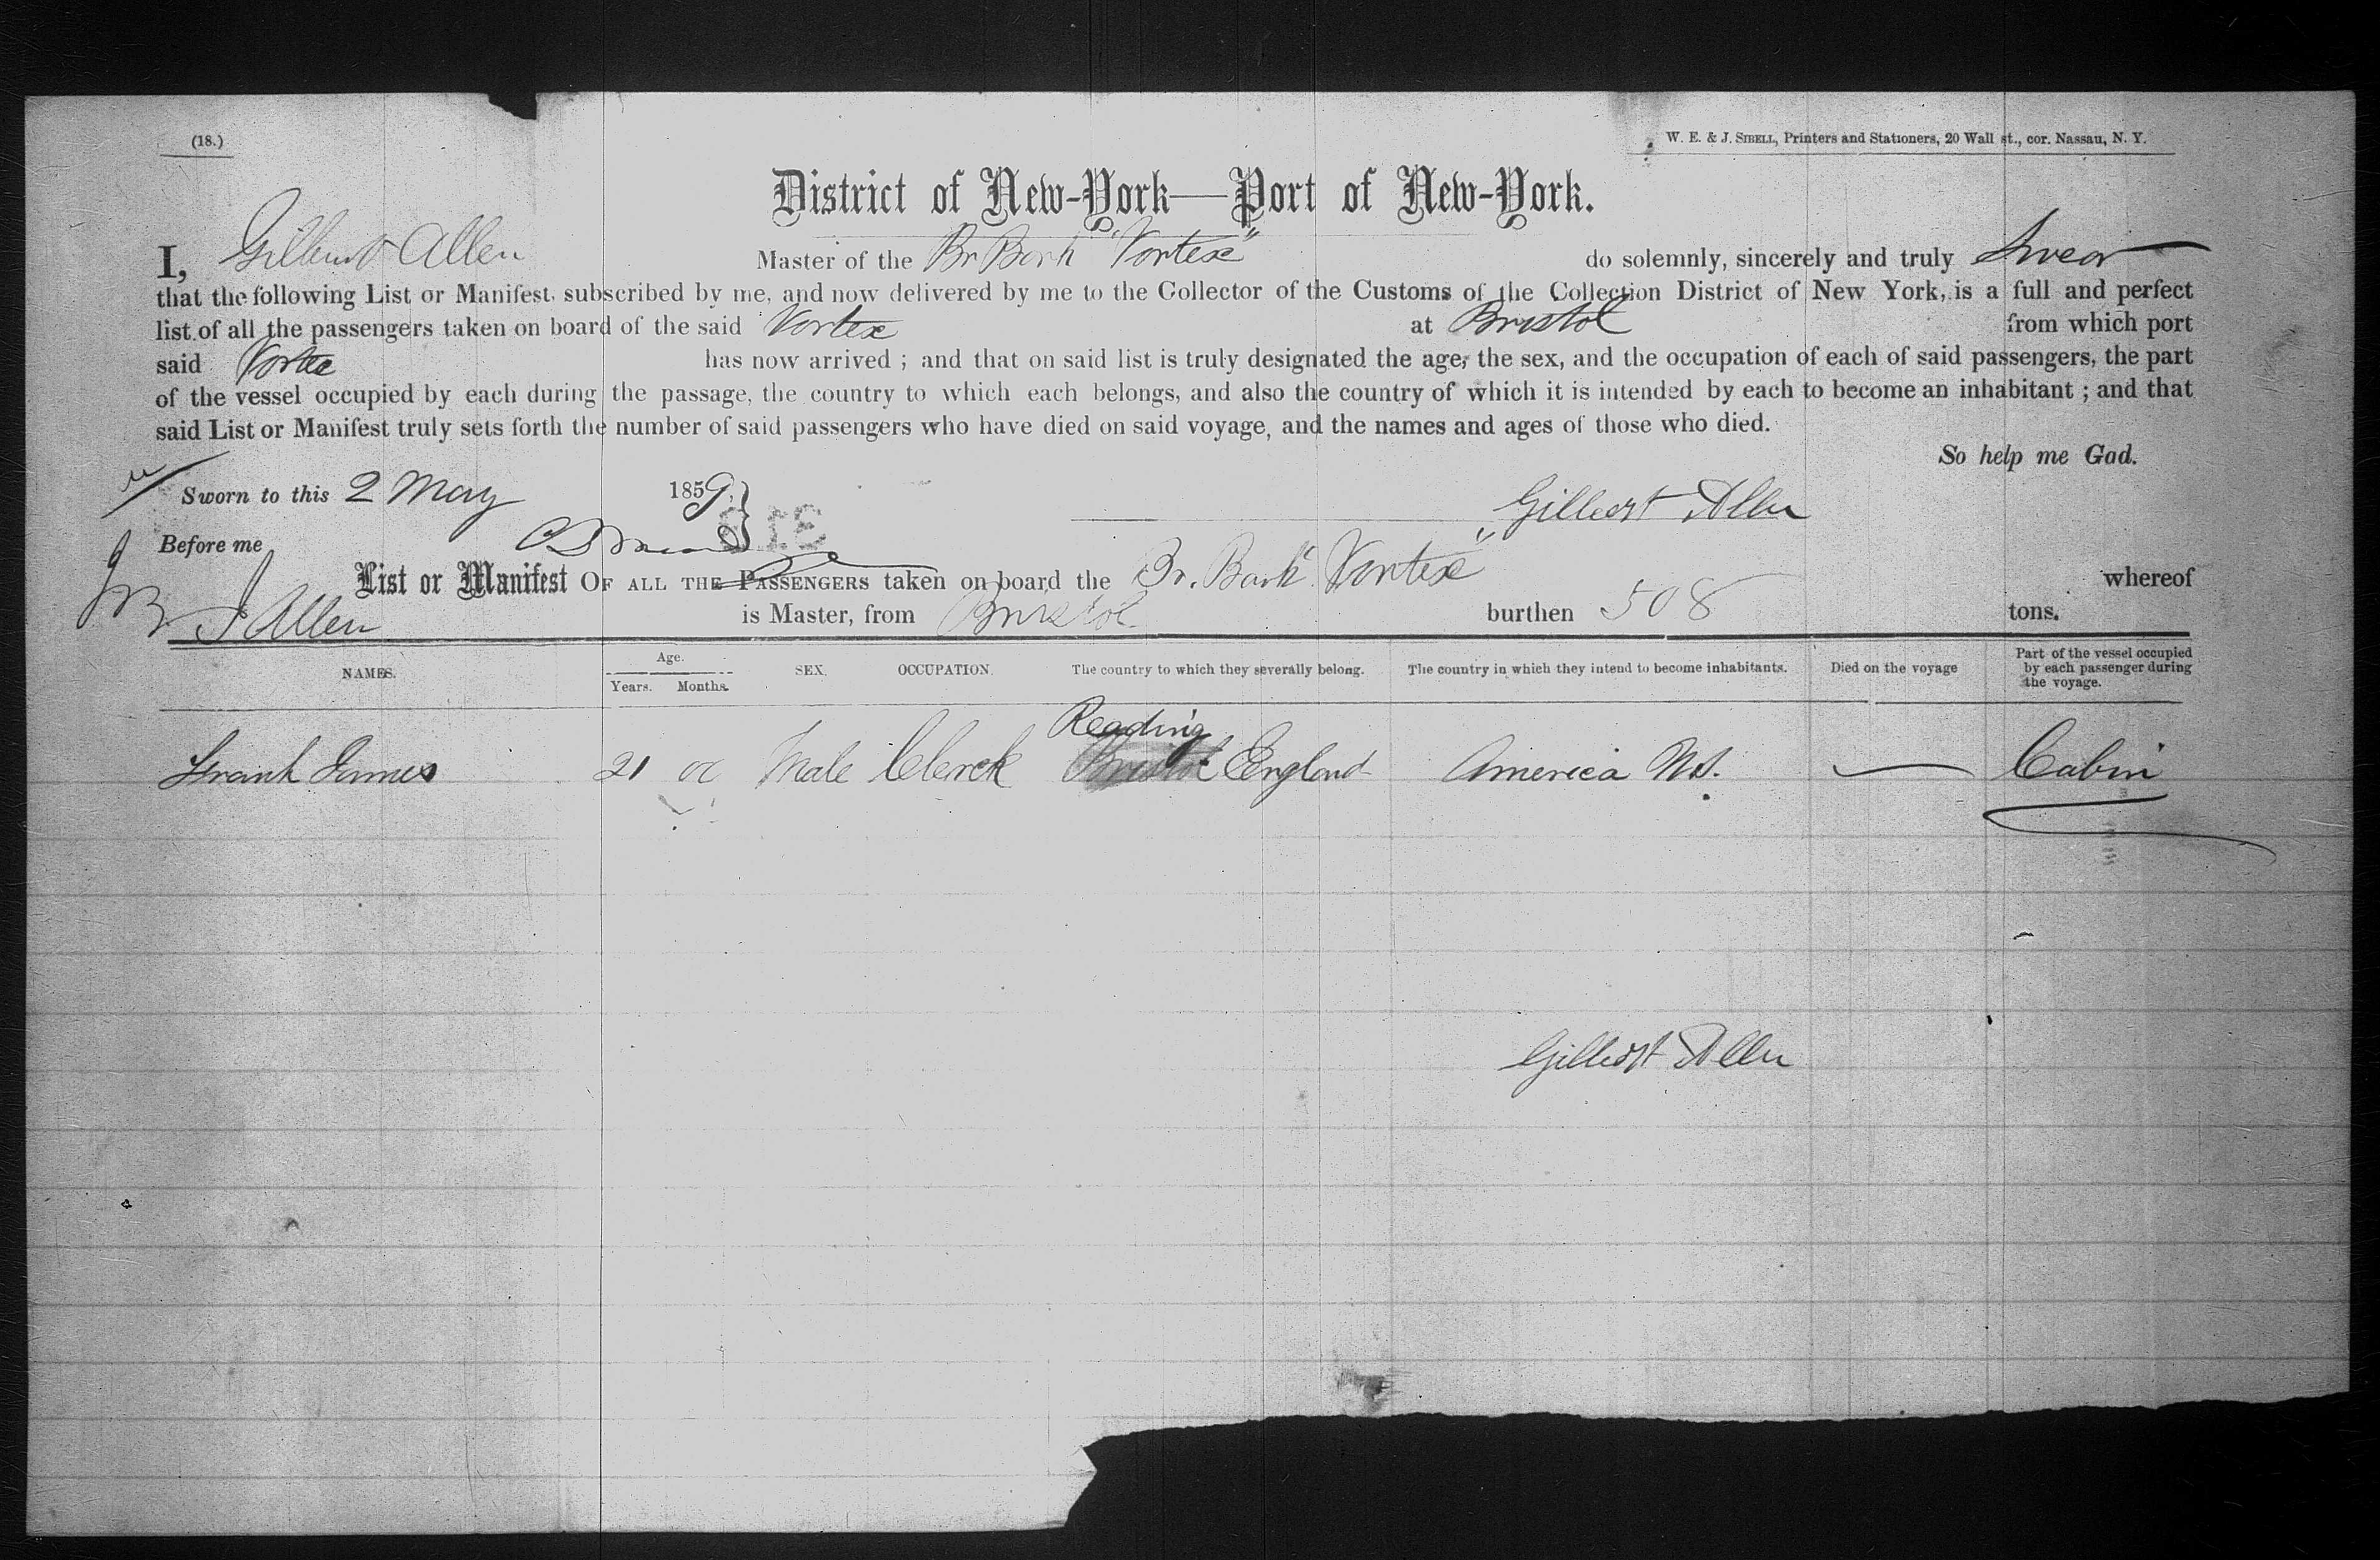 (18.)
W. E. & J. SIBELL, Printers and Stationers, 20 Wall st., cor. Nassau, N. Y.
District of New-York—Port of New-York.
I, Gilbert Allen Master of the Br Bark "Vortex" do solemnly, sincerely and truly Swear
that the following List or Manifest, subscribed by me, and now delivered by me to the Collector of the Customs of the Collection District of New York, is a full and perfect
list of all the passengers taken on board of the said Vortex at Bristol from which port
said Vortex has now arrived ; and that on said list is truly designated the age, the sex, and the occupation of each of said passengers, the part
of the vessel occupied by each during the passage, the country to which each belongs, and also the country of which it is intended by each to become an inhabitant ; and that
said List or Manifest truly sets forth the number of said passengers who have died on said voyage, and the names and ages of those who died.
So help me God.
Sworn to this 2 May 1859.
Gilbert Allen
Before me
List or Manifest OF ALL THE PASSENGERS taken on board the Br. Bark "Vortex" whereof
G Allen is Master, from Bristol burthen 508 tons.
NAMES. Age. Years. Months. SEX. OCCUPATION. The country to which they severally belong. The country in which they intend to become inhabitants. Died on the voyage Part of the vessel occupied by each passenger during the voyage.
Reading
Frank James 21 Male Clerck Bristol England America Cabin
Gilbert Allen